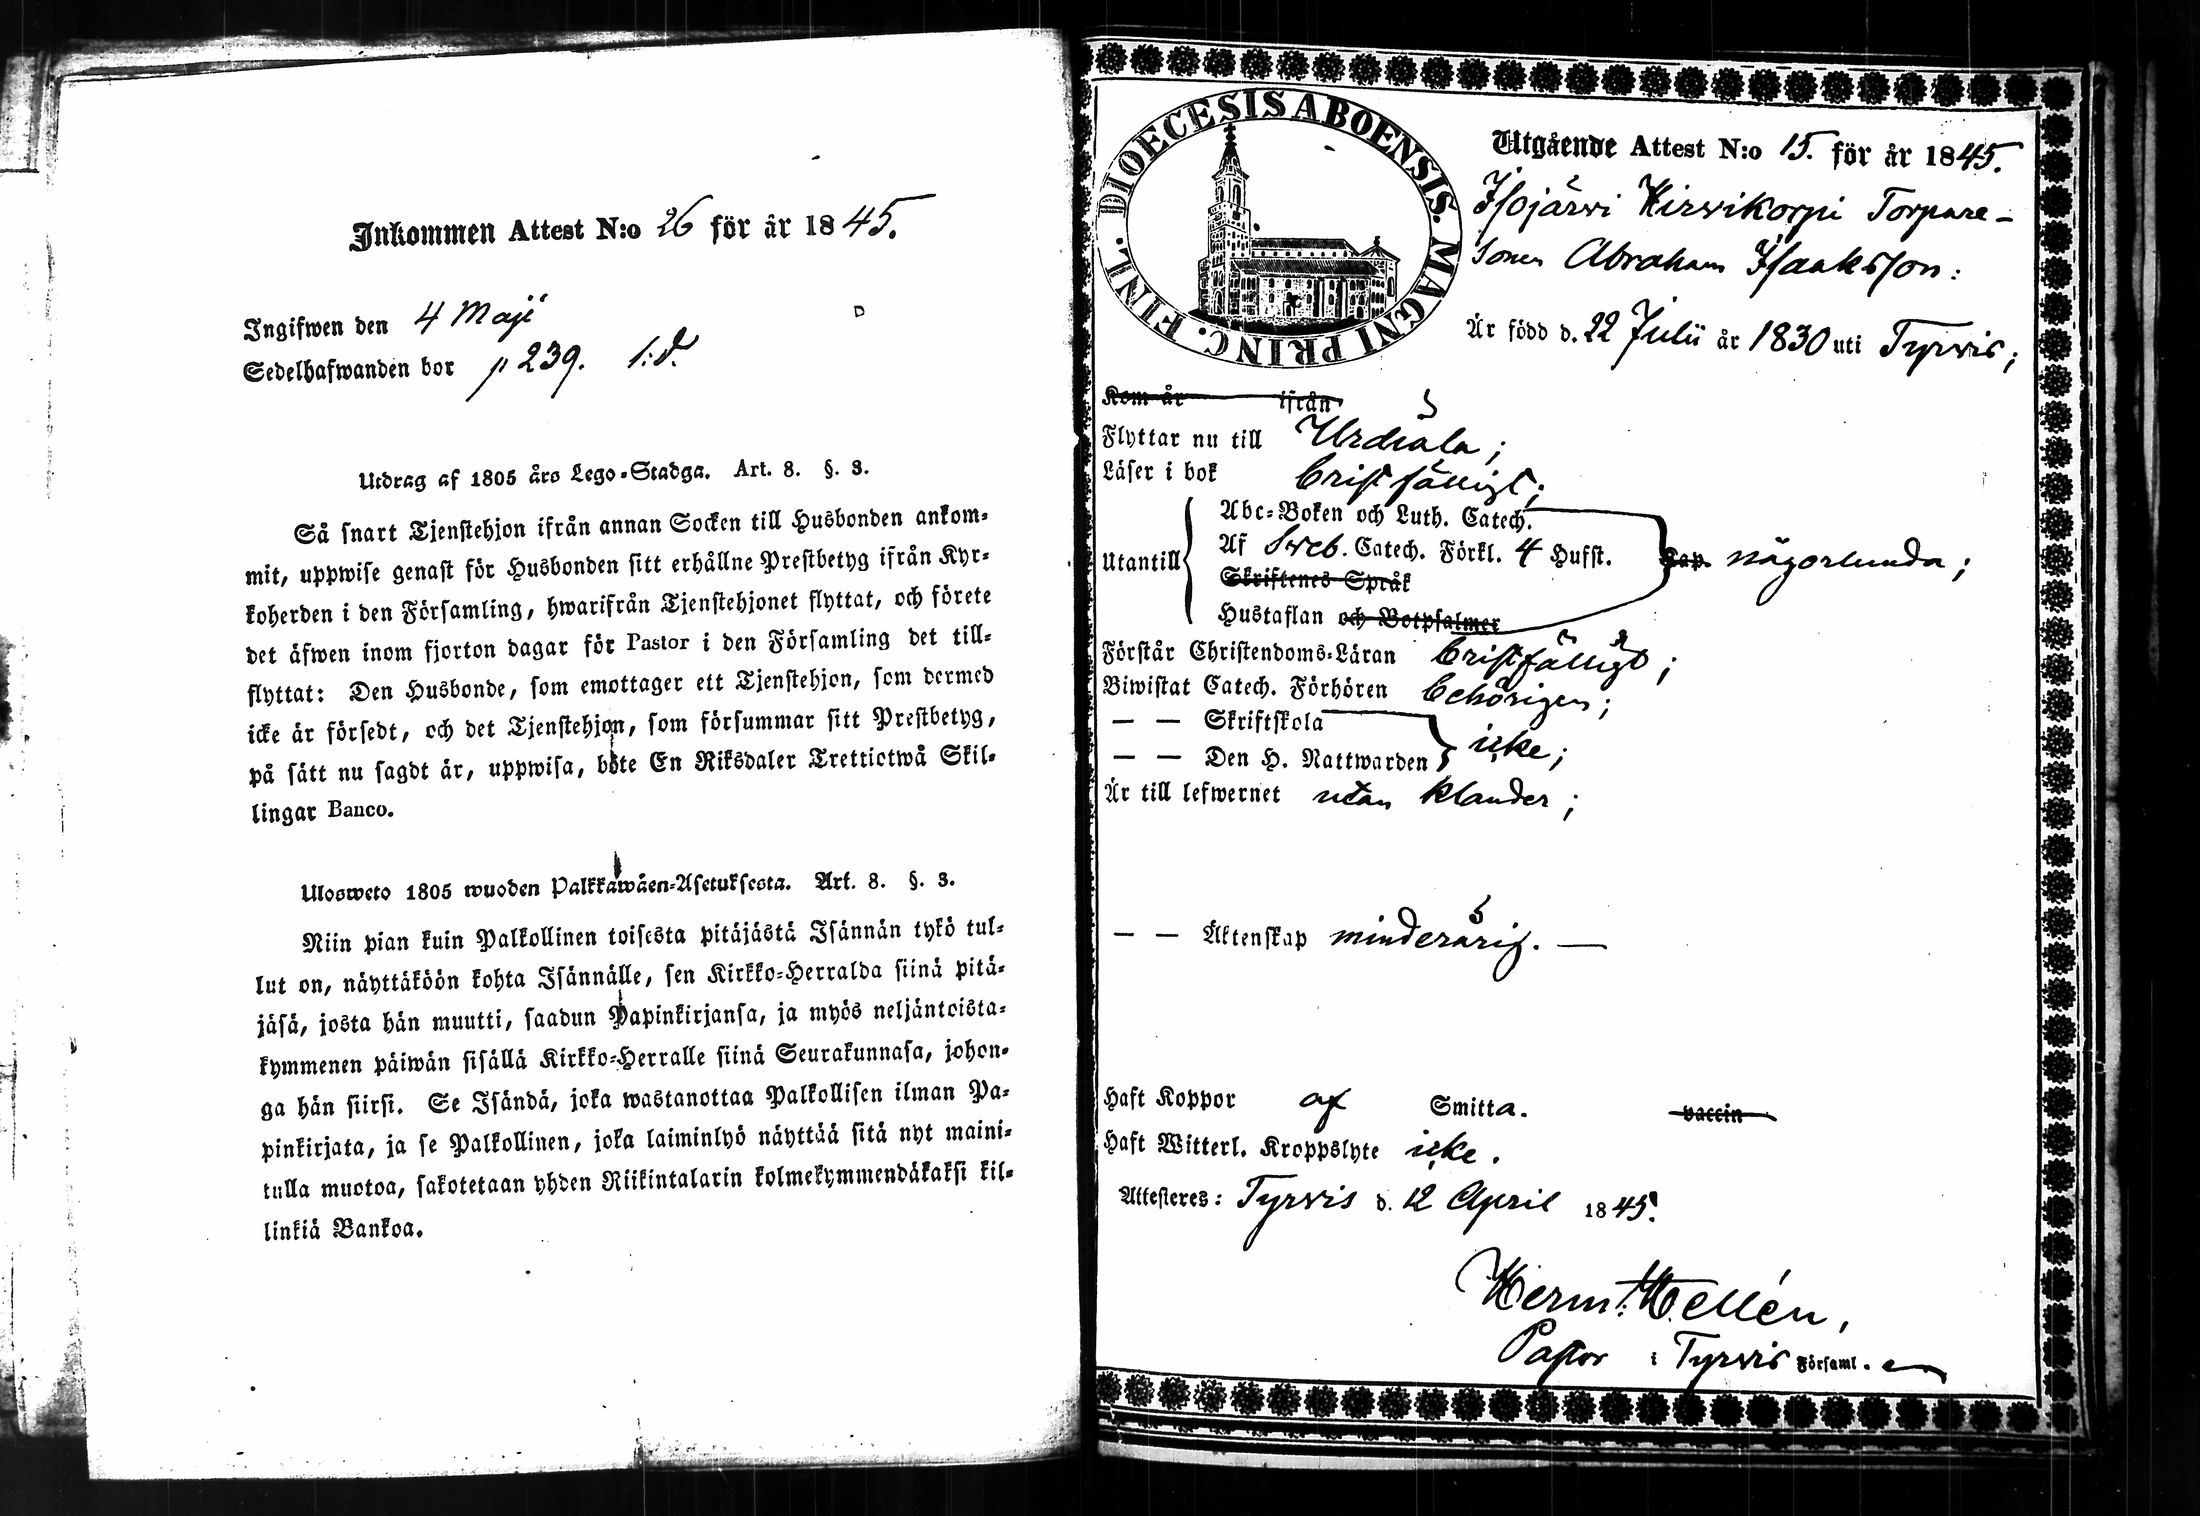 Inkommen Attest N:o 26 för år 1845.
Ingifwen den 4 Maji
Sedelhafwanden bor p 239. 1:d.
Utdrag af 1805 års Lego-Stadga. Art. 8. §. 3.
Så snart Tjenstehjon ifrån annan Socken till Husbonden ankom-
mit, uppwise genast för Husbonden sitt erhållne Prestbetyg ifrån Kyr-
koherden i den Församling, hwarifrån Tjenstehjonet flyttat, och förete
det äfwen inom fjorton dagar för Pastor i den Församling det till-
flyttat: Den Husbonde, som emottager ett Tjenstehjon, som dermed
icke är försedt, och det Tjenstehjon, som försummar sitt Prestbetyg,
på sätt nu sagdt är, uppwisa, böte En Riksdaler Trettiotwå Skil-
lingar Banco.
Ulosweto 1805 wuoden Palkkawäen-Asetuksesta. Art. 8. §. 3.
Niin pian kuin Palkollinen toisesta pitäjästä Isännän tykö tul-
lut on, näyttäköön kohta Isännälle, sen Kirkko-Herralda siinä pitä-
jäsä, josta hän muutti, saadun Papinkirjansa, ja myös neljäntoista-
kymmenen päiwän sisällä Kirkko-Herralle siinä Seurakunnasa, johon-
ga hän siirsi. Se Isändä, joka wastanottaa Palkollisen ilman Pa-
pinkirjata, ja se Palkollinen, joka laiminlyö näyttää sitä nyt maini-
tulla muotoa, sakotetaan yhden Riikintalarin kolmekymmendäkaksi kil-
linkiä Bankoa.
DIOECESIS ABOENSIS. MAGNI PRINC. FINL.
Utgående Attest N:o 15. för år 1845.
Isojärwi Hirvikorpi Torpare-
sonen Abraham Isaaksson:
Är född d. 22 Julii år 1830 uti Tyrvis;
Kom år ifrån
Flyttar nu till Urdiala;
Läser i bok bristfälligt;
Abc-Boken och Luth. Catech.
Utantill Af Sveb. Catech. Förkl. 4 Hufst. Cap. någorlunda;
Skriftenes Språk
Hustaflan och Botpsalmer
Förstår Christendoms-Läran bristfälligt;
Biwistat Catech. Förhören behörigen;
— — Skriftskola
— — Den H. Nattwarden icke;
Är till lefwernet utan klander;
— — Äktenskap minderårig. —
Haft Koppor af Smitta. vaccin
Haft Witterl. Kroppslyte icke.
Attesteres: Tyrvis d. 12 April 1845.
Herm: Hellén,
Pastor i Tyrvis Församl.